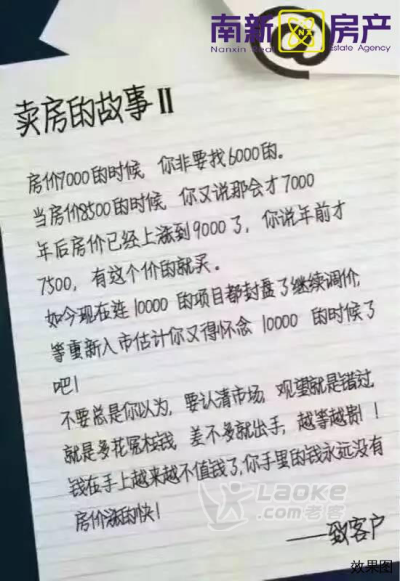 南新 房产
Nanxin Real Estate Agency
卖房的故事Ⅱ
房价7000的时候,你非要找6000的。
当房价8500的时候,你又说那会才7000
年后房价已经上涨到9000了,你说年前才
7500,有这个价的就买。
如今现在连10000的项目都封盘了继续调价,
等重新入市估计你又得怀念10000的时候了
吧!
不要总是你以为,要认清市场,观望就是错过,
就是多花冤枉钱,差不多就出手,越等越贵!!
钱在手上越来越不值钱了,你手里的钱永远没有
房价涨的快!
——致客户
LAOKE
.com 老客
效果图